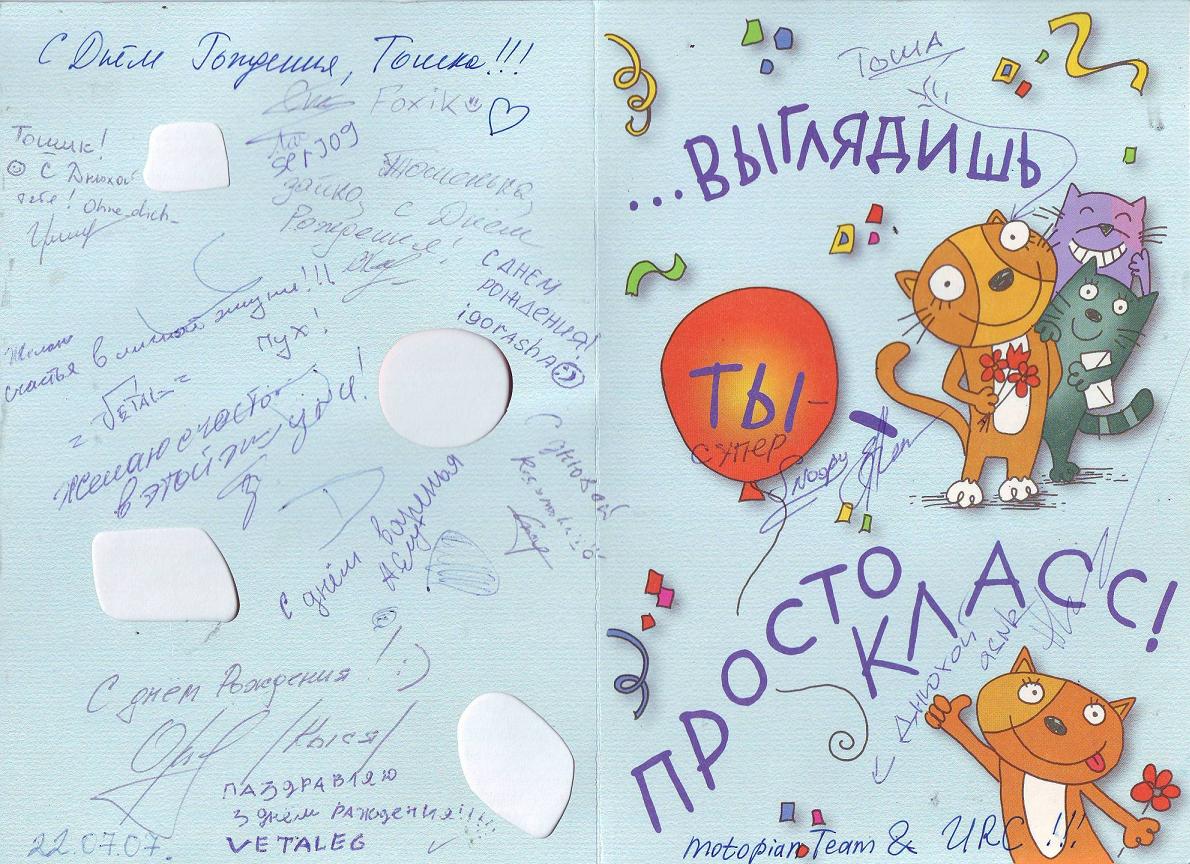 С Днём Рождения, Тошка!!!
Foxik
Тошик!
С Днюхой
тебе! Ohne_dich_
Тошенька,
зайка, с Днем
Рождения!
С ДНЕМ
РОЖДЕНИЯ!
igorasha
Желаю
счастья в личной жизни!!!
Пух!
Желаю счастья
в этой жизни!
С днюхой
С днём варенья
С днём Рождения! :)
/Кыся/
ПАЗДРАВЛЯЮ
З днём РАЖДЕНИЯ!!!
VETALEG
22.07.07.
Тоша
...ВЫГЛЯДИШЬ
ТЫ-
супер
Snoopy
ПРОСТО
КЛАСС!
С Днюхой
asnk
motopian Team & URC !!!